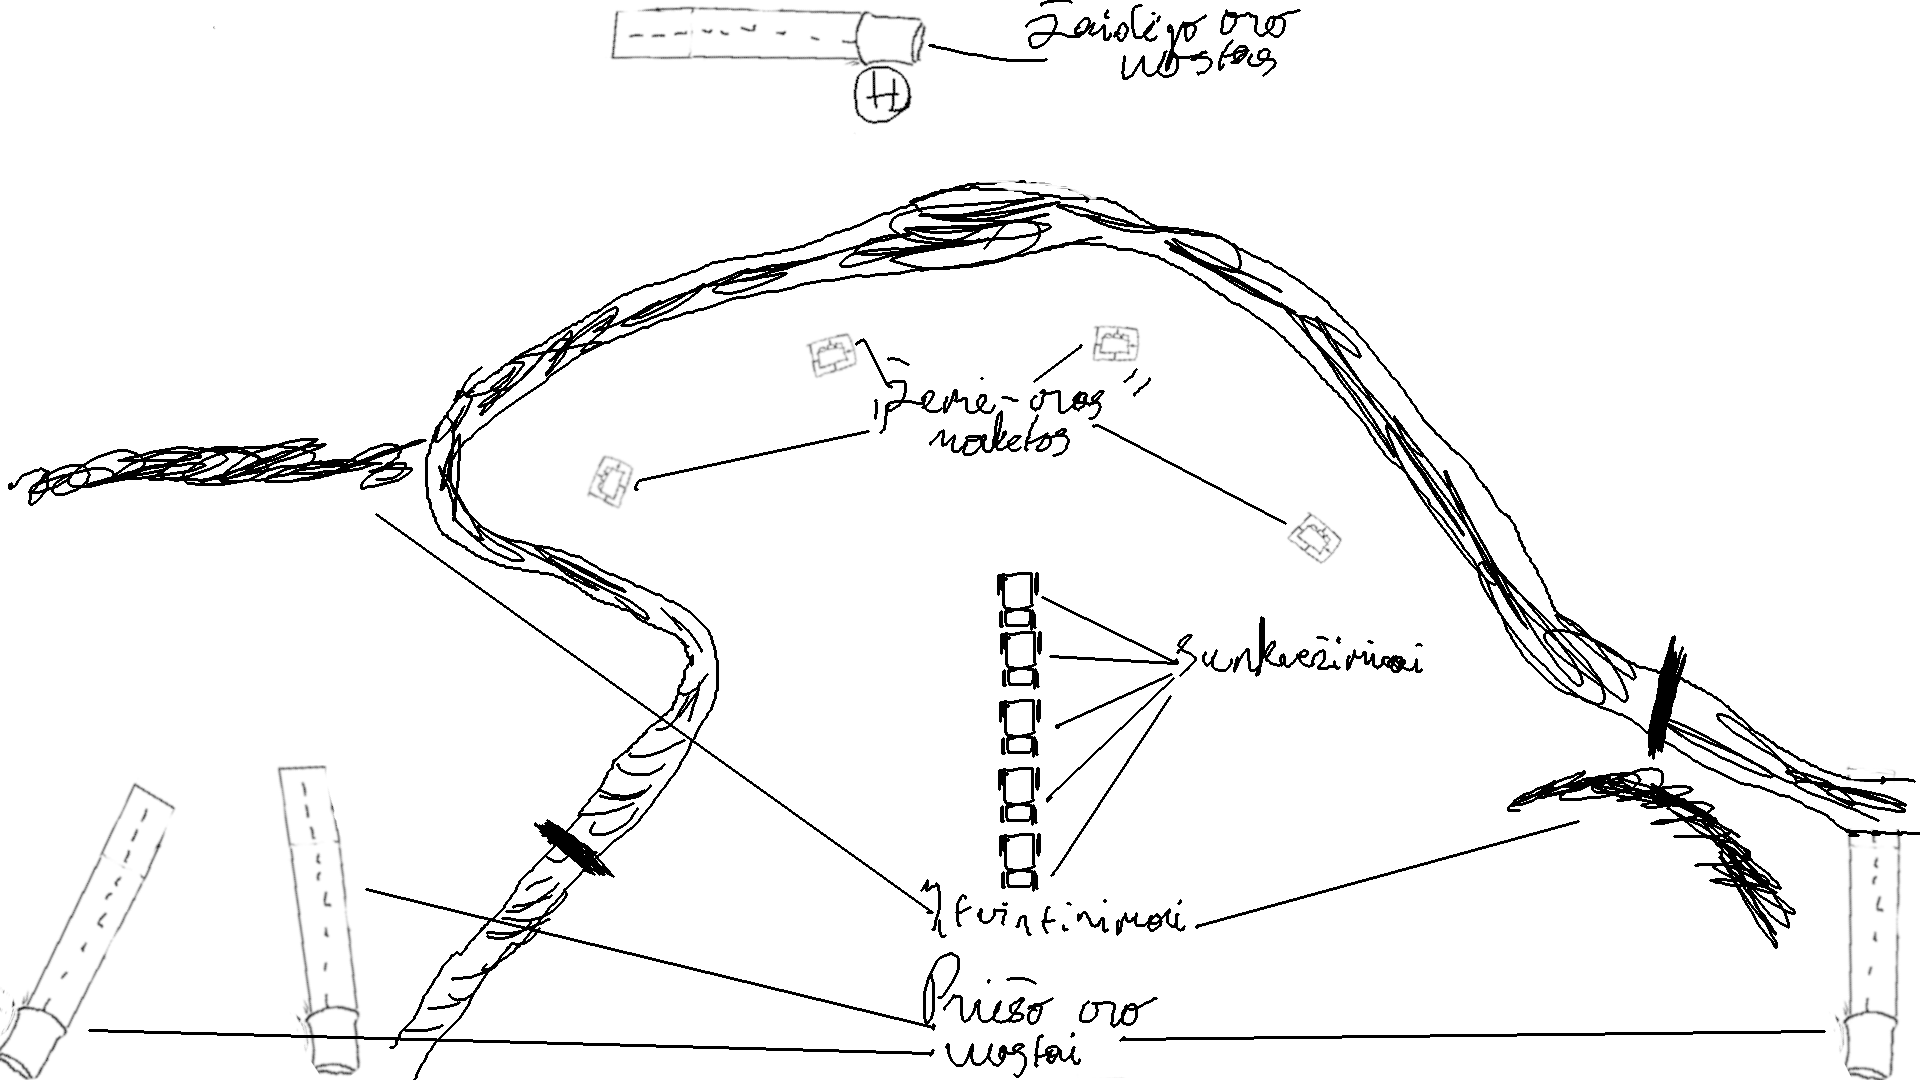 Žaidėjo oro
uostas
H
„Žemė-oras"
raketos
Sunkvežimiai
Įtvirtinimai
Priešo oro
uostai